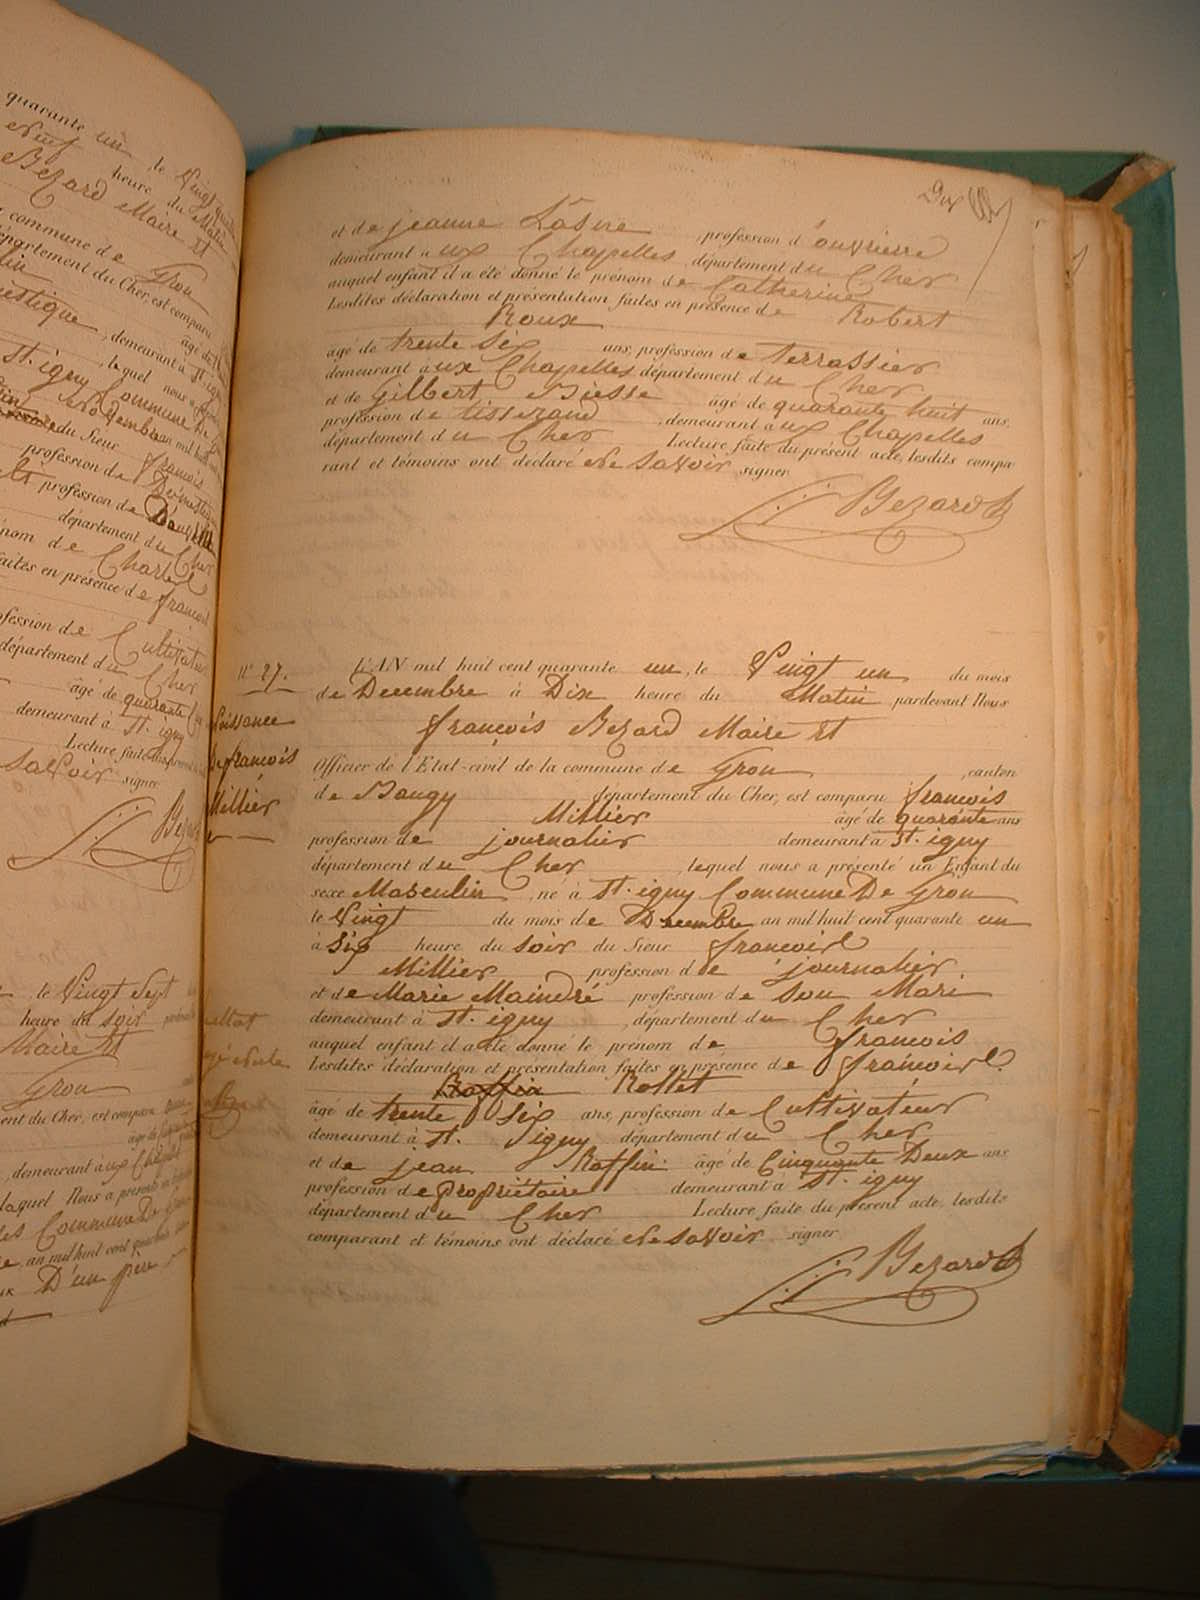 quarante un le Vingt
Neuf heure du Matin
Bezard Maire Et
commune de Gron
département du Cher, est comparu
âgé de
demeurant à St. igny
lequel nous a
St. igny Commune De
du Sieur françois
profession de Domestique
profession de
département du Cher
Charles
faites en présence de françois
profession de Cultivateur
département du Cher
âgé de quarante
demeurant à St. igny
Lecture faite
saVoir signer
Bezard
le Vingt Sept
heure du soir
Maire Et
Gron
du Cher, est comparu
demeurant aux
laquel Nous a présenté
Commune De
an mil huit cent quarante
D'un père
Dix
et de jeanne Lasne, profession d'ouvrierre
demeurant aux Chapelles, département du Cher
auquel enfant il a été donné le prénom de Catherine
Lesdites déclaration et présentation faites en présence de Robert
Roux
âgé de trente six ans, profession de terrassier
demeurant aux Chapelles département du Cher
et de Gilbert Biesse âgé de quarante huit ans,
profession de tisserand, demeurant aux Chapelles
département du Cher Lecture faite du présent acte, lesdits compa
rant et témoins ont déclaré Ne saVoir signer
Bezard
N° 27.
Naissance
De françois
Millier
L'AN mil huit cent quarante un, le Vingt un du mois
de Decembre à Dix heure du Matin pardevant Nous
françois Bezard Maire Et
Officier de l'Etat-civil de la commune de Gron, canton
de Baugy département du Cher, est comparu françois
Millier âgé de quarante ans
profession de journalier demeurant à St. igny
département du Cher, lequel nous a présenté un Enfant du
sexe Masculin, né à St. igny Commune De Gron
le Vingt du mois de Decembre an mil huit cent quarante un
à six heure du soir du Sieur francois
Millier profession de journalier
et de Marie Maindré profession de Son Mari
demeurant à St. igny, département du Cher
auquel enfant il a été donné le prénom de francois
Lesdites déclaration et présentation faites en présence de francois
Raffin Rollet
âgé de trente Six ans, profession de Cultivateur
demeurant à St. Igny département du Cher
et de jean Raffin âgé de Cinquante Deux ans
profession de Propriétaire demeurant à St. igny
département du Cher Lecture faite du présent acte, lesdits
comparant et témoins ont déclaré Ne saVoir signer
Bezard